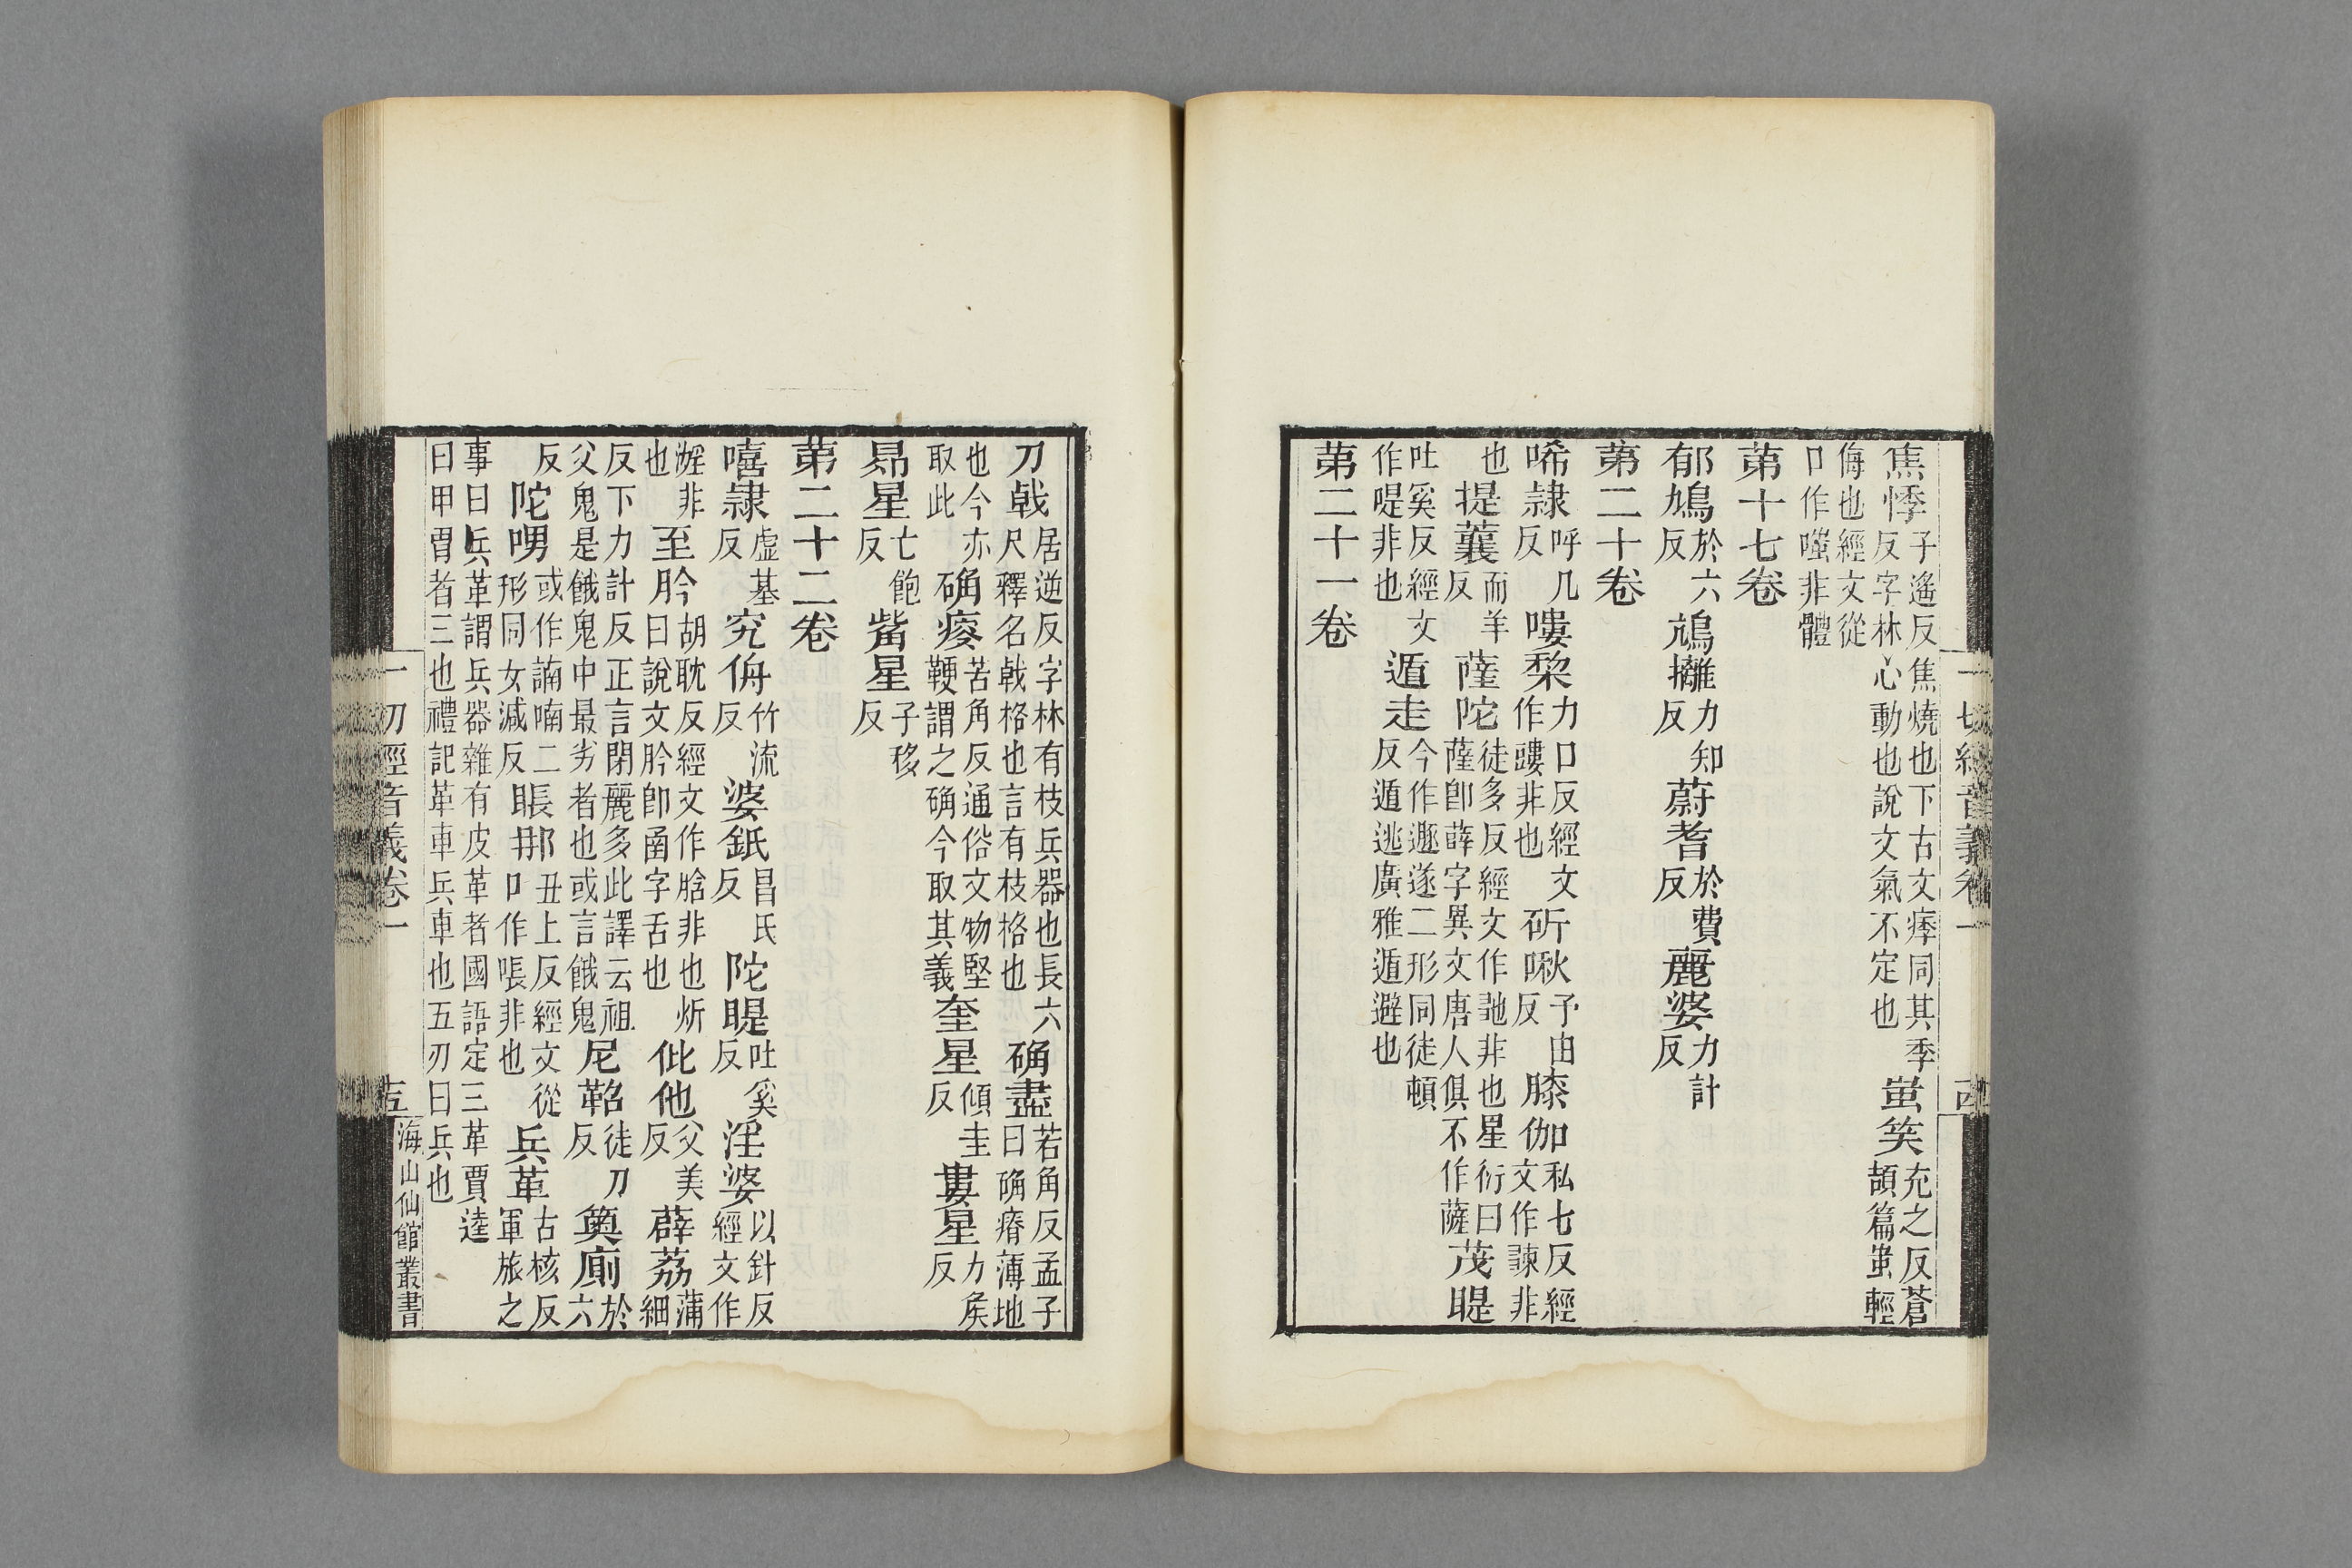 一切經音義卷一 十四
焦悸子遙反焦燒也下古文痵同其季反字林心動也說文氣不定也蚩笑充之反蒼頡篇蚩輕
侮也經文從口作嗤非體
第十七卷
郁鳩於六反鴆攡力知反蔚耆於費反麗婆力計反
第二十卷
唏隷呼几反嘍棃力口反經文作䁖非也斫啾予由反膝伽私七反經文作諫非
也提蘘而羊反薩陀徒多反經文作訑非也星衍曰薩卽薛字異文唐人俱不作薩茂睼
吐奚反經文作㖷非也遁走今作遯遂二形同徒頓反遁逃廣雅遁避也
第二十一卷
刀戟居逆反字林有枝兵器也長六尺釋名戟格也言有枝格也确盡苦角反孟子曰确瘠薄地
也今亦取此确㾭苦角反通俗文物堅鞕謂之确今取其義奎星傾圭反婁星力矦反
昴星亡飽反觜星子移反
第二十二卷
嘻隷虛基反究侜竹流反婆䤚昌氏反陀睼吐奚反淫婆以針反經文作
婬非也至肣胡耽反經文作䀫非也炘曰說文肣卽函字舌也仳他父美反薜荔蒲細
反下力計反正言閉麗多此譯云祖父鬼是餓鬼中最劣者也或言餓鬼尼鞀徒刀反奧廁於六
反陀㖠或作諵喃二形同女減反䁰那丑上反經文從口作㗀非也兵革古核反軍旅之
事曰兵革謂兵器雜有皮革者國語定三革賈逵曰甲冑者三也禮記革車兵車也五刃曰兵也
一切經音義卷一 十五 海山仙館叢書